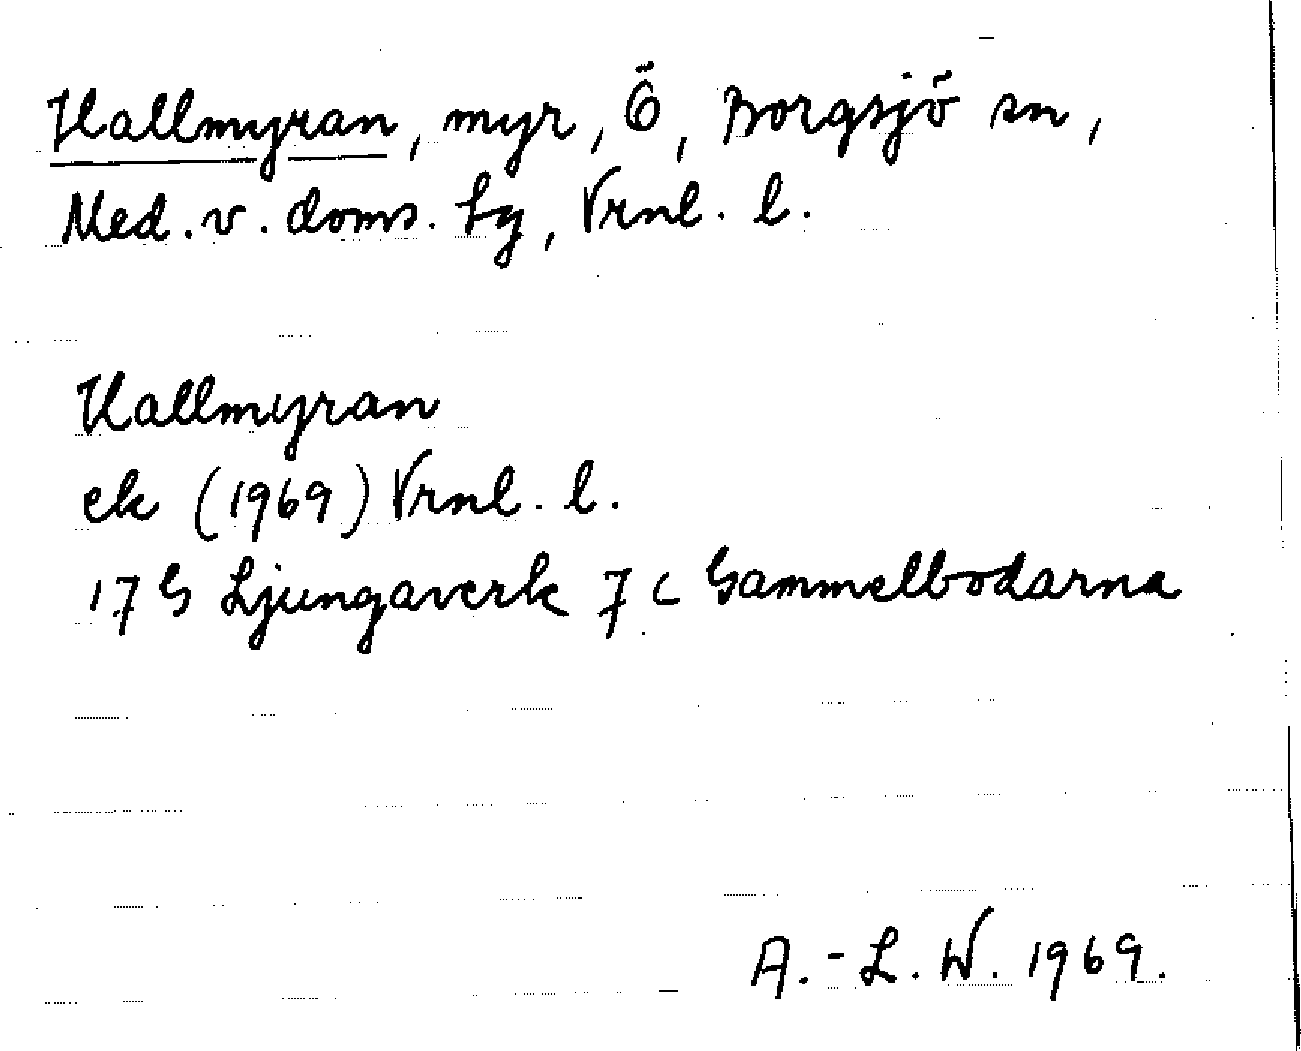 Hallmyran, myr, Ö, Borgsjö sn,
Med. v. doms. lg, Vrnl. l.
Hallmyran
ek (1969) Vrnl. l.
17 G Ljungaverk 7 c Gammelbodarna
A.-L. W. 1969.